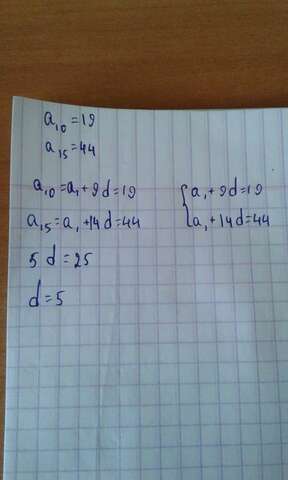 a₁₀=19
a₁₅=44
a₁₀=a₁+9d=19
a₁₅=a₁+14d=44
5d=25
d=5
{a₁+9d=19
a₁+14d=44